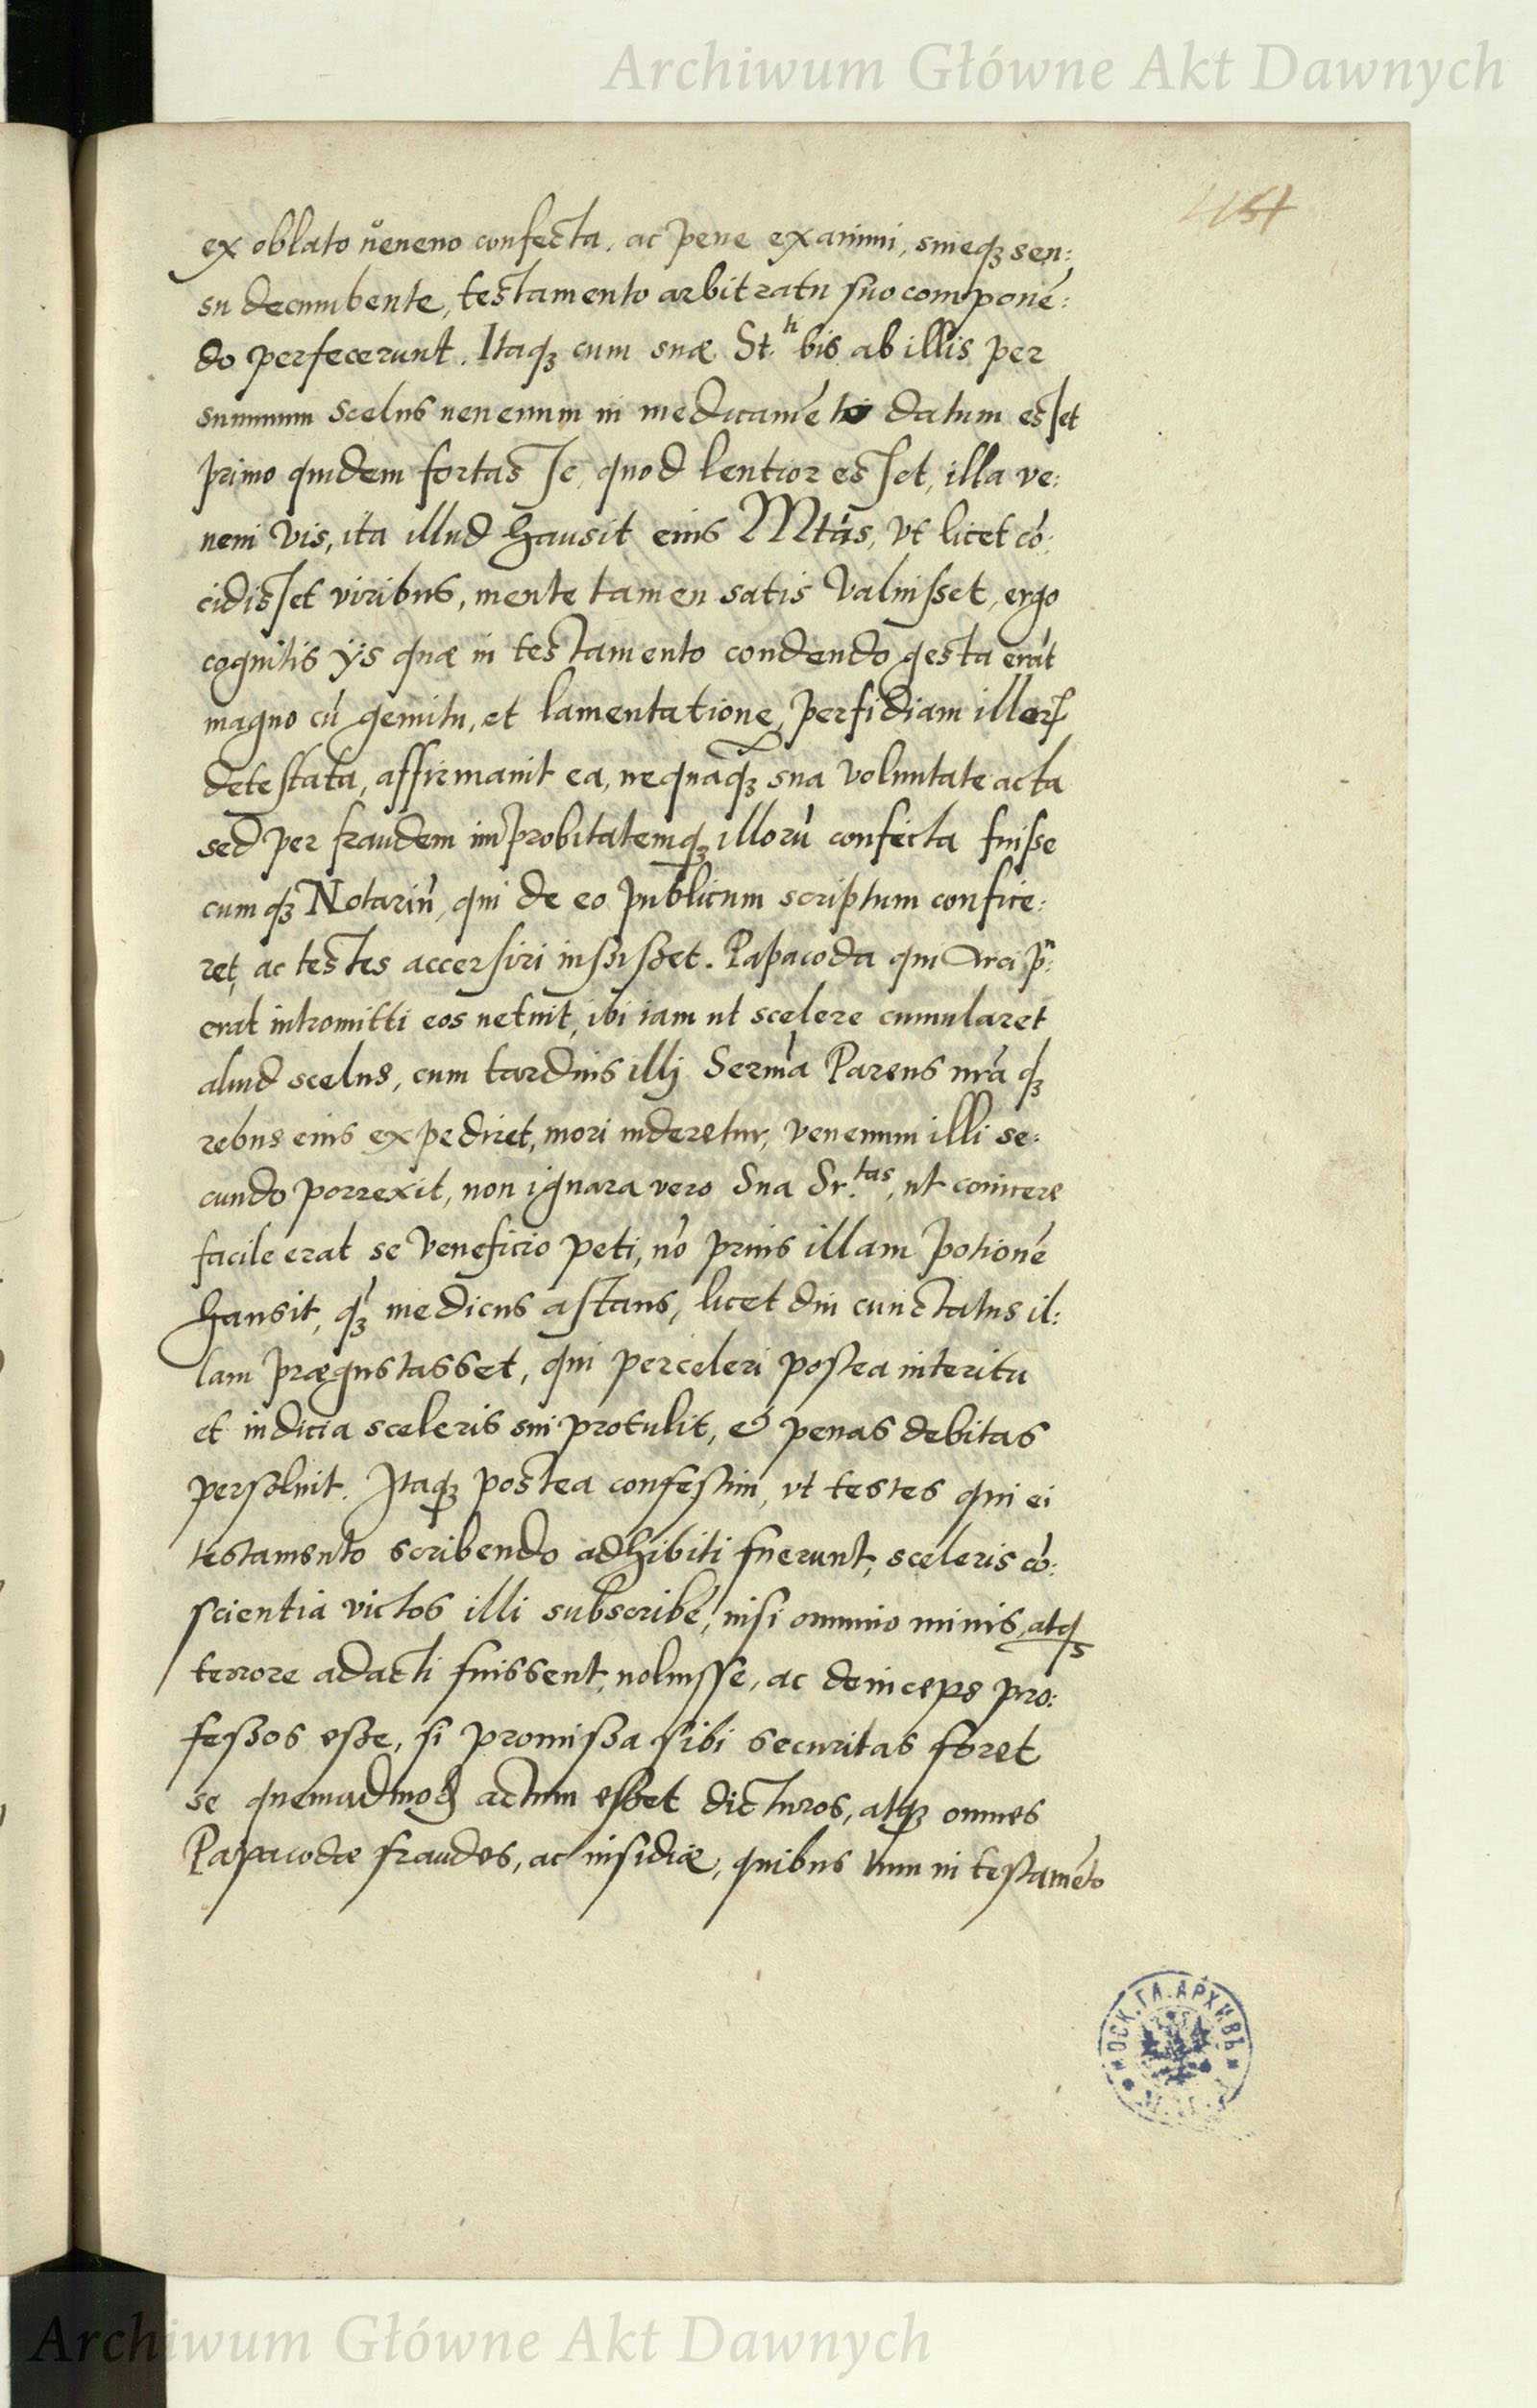 Archiwum Główne Akt Dawnych
ex oblato ůeneno confecta, ac pene exanimi, sineqȝ sen:
su decumbente, testamento arbitratu suo componé:
do perfecerunt. Itaqȝ cum suæ St. bis ab illis per
summum scelus uenenum in medicamēto datum esset
primo quidem fortasse, quod lentior esset, illa ve:
neni vis, ita illud hausit eius Mtās, vt licet cō:
cidisset viribus, mente tamen satis valuisset, ergo
cognitis ijs quæ in testamento condendo gesta erāt
magno cū gemitu, et lamentatione, perfidiam illorꝝ
detestata, affirmauit ea, nequaqȝ sua voluntate acta
sed per fraudem improbitatemqȝ illorū confecta fuisse
cumqȝ Notariū, qui de eo publicum scriptum confice:
ret, ac testes accersiri iussisset. Papacoda qui Arci p̄:
erat intromitti eos uetuit, ibi iam ut scelere cumularet
aliud scelus, cum tardius illj Serm̄a Parens nr̄a qȝ
rebus eius expediret, mori uideretur, venenum illi se:
cundo porrexit, non ignara vero Sua Sr.tas, ut conijcere
facile erat se veneficio peti, nō prius illam potionē
hausit, qȝ̄ medicus astans, licet diu cunctatus il:
lam prægustasset, qui perceleri postea interitu
et indicia sceleris sui protulit, & penas debitas
persoluit. Itaqȝ postea confestim, vt testes qui ei
testamento scribendo adhibiti fuerunt, sceleris cō:
scientia victos illi subscribé, nisi omnino minis, atqȝ
terrore adacti fuissent, noluisse, ac deinceps pro:
fessos esse, si promissa sibi securitas foret
se quemadmoď actum esset dicturos, atqȝ omnes
Papacodæ fraudes, ac insidiæ, quibus tum in testamēto
ОСК. ГЛ. АРХИВЪ
Archiwum Główne Akt Dawnych